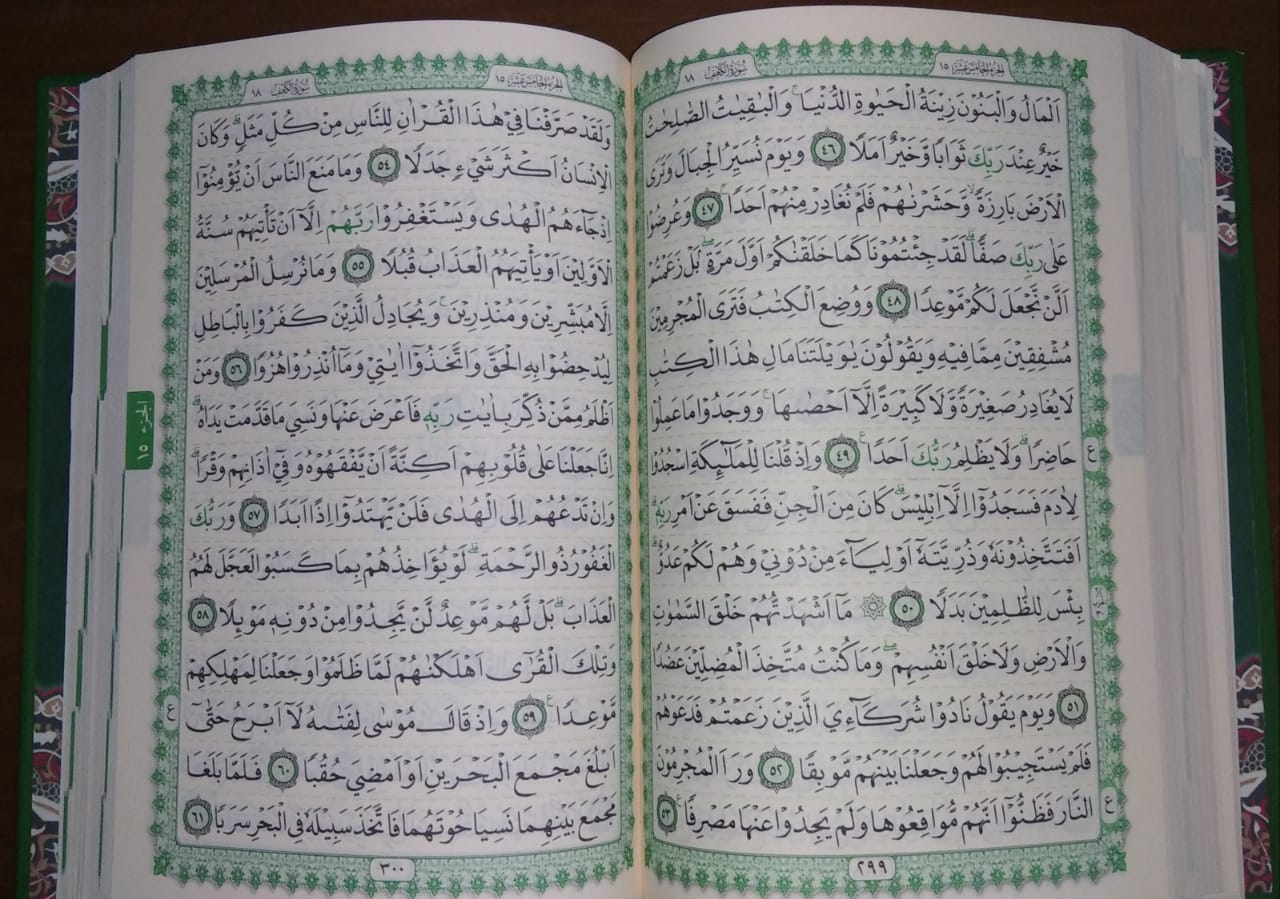 سورة الكهف ١٨
الجزء الخامس عشر ١٥
اَلْمَالُ وَالْبَنُوْنَ زِيْنَةُ الْحَيٰوةِ الدُّنْيَا ۚ وَالْبٰقِيٰتُ الصّٰلِحٰتُ
خَيْرٌ عِنْدَ رَبِّكَ ثَوَابًا وَّخَيْرٌ اَمَلًا ٤٦ وَيَوْمَ نُسَيِّرُ الْجِبَالَ وَتَرَى
الْاَرْضَ بَارِزَةً ۙ وَّحَشَرْنٰهُمْ فَلَمْ نُغَادِرْ مِنْهُمْ اَحَدًا ۚ ٤٧ وَعُرِضُوْا
عَلٰى رَبِّكَ صَفًّا ۗ لَقَدْ جِئْتُمُوْنَا كَمَا خَلَقْنٰكُمْ اَوَّلَ مَرَّةٍ ۖ بَلْ زَعَمْتُمْ
اَلَّنْ نَّجْعَلَ لَكُمْ مَّوْعِدًا ٤٨ وَوُضِعَ الْكِتٰبُ فَتَرَى الْمُجْرِمِيْنَ
مُشْفِقِيْنَ مِمَّا فِيْهِ وَيَقُوْلُوْنَ يٰوَيْلَتَنَا مَالِ هٰذَا الْكِتٰبِ
لَا يُغَادِرُ صَغِيْرَةً وَّلَا كَبِيْرَةً اِلَّآ اَحْصٰىهَا ۚ وَوَجَدُوْا مَا عَمِلُوْا
حَاضِرًا ۗ وَلَا يَظْلِمُ رَبُّكَ اَحَدًا ࣖ ٤٩ وَاِذْ قُلْنَا لِلْمَلٰۤىِٕكَةِ اسْجُدُوْا
لِاٰدَمَ فَسَجَدُوْٓا اِلَّآ اِبْلِيْسَ ۗ كَانَ مِنَ الْجِنِّ فَفَسَقَ عَنْ اَمْرِ رَبِّهٖ ۗ
اَفَتَتَّخِذُوْنَهٗ وَذُرِّيَّتَهٗٓ اَوْلِيَاۤءَ مِنْ دُوْنِيْ وَهُمْ لَكُمْ عَدُوٌّ ۗ
بِئْسَ لِلظّٰلِمِيْنَ بَدَلًا ٥٠ ۞ مَآ اَشْهَدْتُّهُمْ خَلْقَ السَّمٰوٰتِ
وَالْاَرْضِ وَلَا خَلْقَ اَنْفُسِهِمْ ۖ وَمَا كُنْتُ مُتَّخِذَ الْمُضِلِّيْنَ عَضُدًا
٥١ وَيَوْمَ يَقُوْلُ نَادُوْا شُرَكَاۤءِيَ الَّذِيْنَ زَعَمْتُمْ فَدَعَوْهُمْ
فَلَمْ يَسْتَجِيْبُوْا لَهُمْ وَجَعَلْنَا بَيْنَهُمْ مَّوْبِقًا ٥٢ وَرَاَ الْمُجْرِمُوْنَ
النَّارَ فَظَنُّوْٓا اَنَّهُمْ مُّوَاقِعُوْهَا وَلَمْ يَجِدُوْا عَنْهَا مَصْرِفًا ࣖ ٥٣
ع
ع
٢٩٩
سورة الكهف ١٨
الجزء الخامس عشر ١٥
وَلَقَدْ صَرَّفْنَا فِيْ هٰذَا الْقُرْاٰنِ لِلنَّاسِ مِنْ كُلِّ مَثَلٍ ۗ وَكَانَ
الْاِنْسَانُ اَكْثَرَ شَيْءٍ جَدَلًا ٥٤ وَمَا مَنَعَ النَّاسَ اَنْ يُّؤْمِنُوْٓا
اِذْ جَاۤءَهُمُ الْهُدٰى وَيَسْتَغْفِرُوْا رَبَّهُمْ اِلَّآ اَنْ تَأْتِيَهُمْ سُنَّةُ
الْاَوَّلِيْنَ اَوْ يَأْتِيَهُمُ الْعَذَابُ قُبُلًا ٥٥ وَمَا نُرْسِلُ الْمُرْسَلِيْنَ
اِلَّا مُبَشِّرِيْنَ وَمُنْذِرِيْنَ ۚ وَيُجَادِلُ الَّذِيْنَ كَفَرُوْا بِالْبَاطِلِ
لِيُدْحِضُوْا بِهِ الْحَقَّ وَاتَّخَذُوْٓا اٰيٰتِيْ وَمَآ اُنْذِرُوْا هُزُوًا ٥٦ وَمَنْ
اَظْلَمُ مِمَّنْ ذُكِّرَ بِاٰيٰتِ رَبِّهٖ فَاَعْرَضَ عَنْهَا وَنَسِيَ مَا قَدَّمَتْ يَدَاهُ ۗ
اِنَّا جَعَلْنَا عَلٰى قُلُوْبِهِمْ اَكِنَّةً اَنْ يَّفْقَهُوْهُ وَفِيْٓ اٰذَانِهِمْ وَقْرًا ۗ
وَاِنْ تَدْعُهُمْ اِلَى الْهُدٰى فَلَنْ يَّهْتَدُوْٓا اِذًا اَبَدًا ٥٧ وَرَبُّكَ
الْغَفُوْرُ ذُو الرَّحْمَةِ ۗ لَوْ يُؤَاخِذُهُمْ بِمَا كَسَبُوْا لَعَجَّلَ لَهُمُ
الْعَذَابَ ۗ بَلْ لَّهُمْ مَّوْعِدٌ لَّنْ يَّجِدُوْا مِنْ دُوْنِهٖ مَوْىِٕلًا ٥٨
وَتِلْكَ الْقُرٰٓى اَهْلَكْنٰهُمْ لَمَّا ظَلَمُوْا وَجَعَلْنَا لِمَهْلِكِهِمْ
مَّوْعِدًا ࣖ ٥٩ وَاِذْ قَالَ مُوْسٰى لِفَتٰىهُ لَآ اَبْرَحُ حَتّٰٓى
اَبْلُغَ مَجْمَعَ الْبَحْرَيْنِ اَوْ اَمْضِيَ حُقُبًا ٦٠ فَلَمَّا بَلَغَا
مَجْمَعَ بَيْنِهِمَا نَسِيَا حُوْتَهُمَا فَاتَّخَذَ سَبِيْلَهٗ فِى الْبَحْرِ سَرَبًا ٦١
ع
٣٠٠
الجزء ١٥